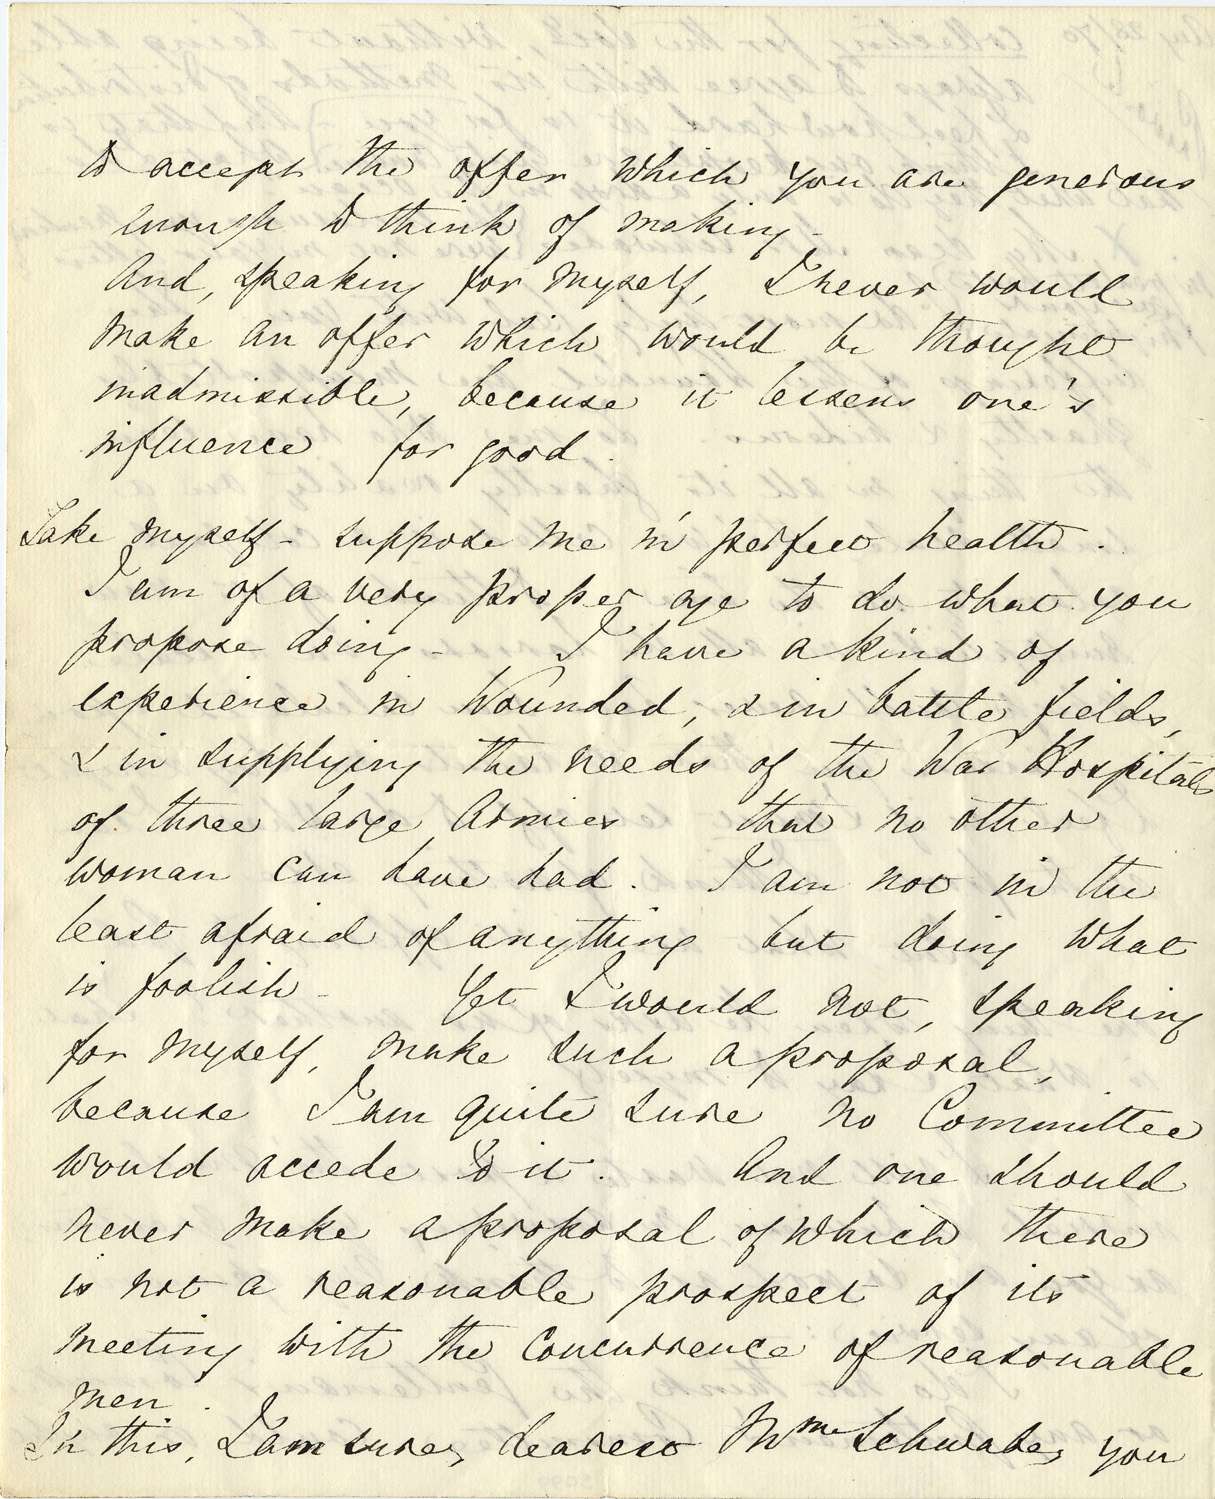 to accept the offer which you are generous
enough to think of making -
And, speaking for myself, I never would
make an offer which would be thought
inadmissible, because it lessens one's
influence for good.
Take myself - suppose me in perfect health.
I am of a very proper age to do what you
propose doing - I have a kind of
experience in Wounded, & in battle fields,
& in supplying the needs of the War Hospitals
of three large Armies that no other
woman can have had. I am not in the
least afraid of anything but doing what
is foolish - Yet I would not, speaking
for myself, make such a proposal,
because I am quite sure no Committee
would accede to it. And one should
never make a proposal of which there
is not a reasonable prospect of its
meeting with the concurrence of reasonable
men.
In this, I am sure, dearest Mme Schwabe, you